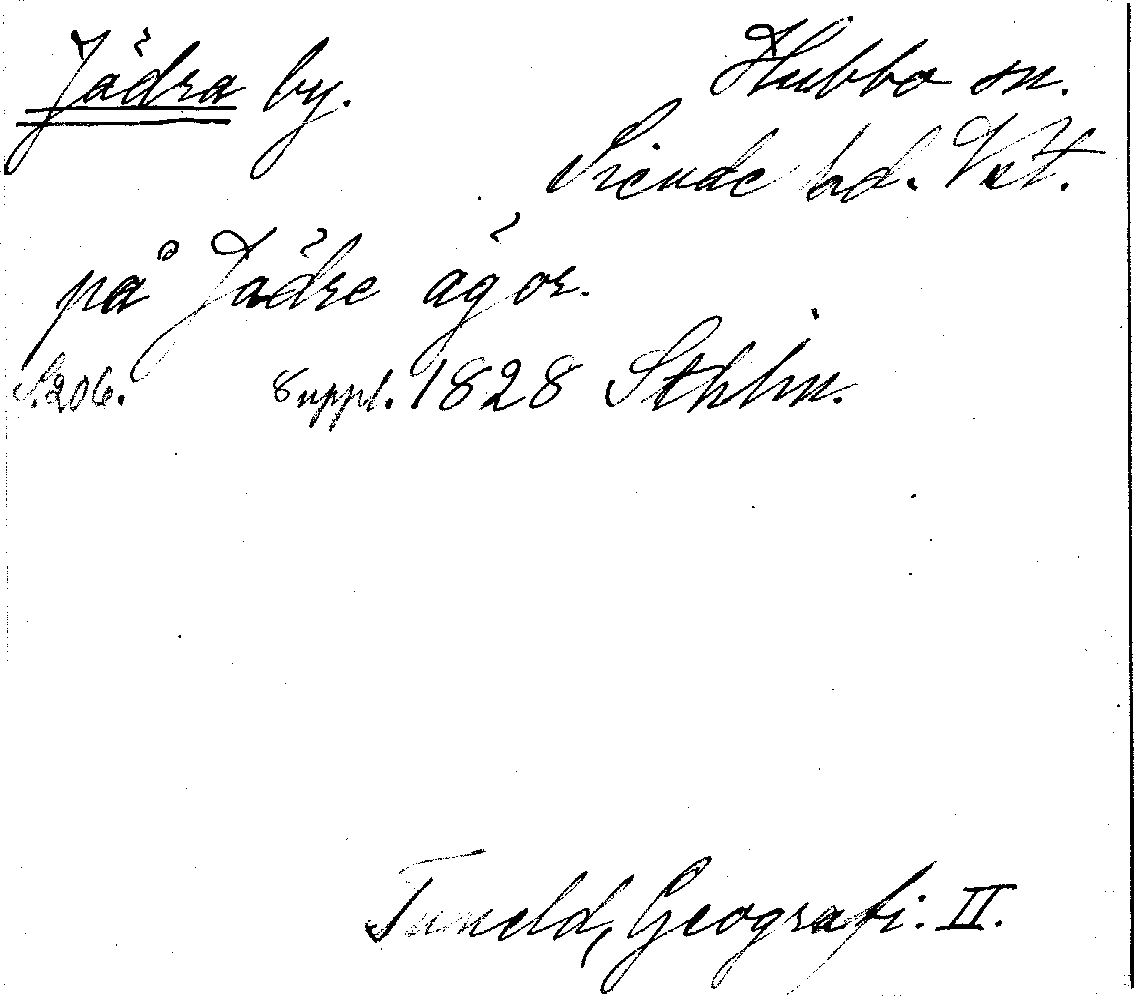 Jädra by.
Hubbo sn.
Siende hd. Vst.
på Jädre ägor.
S. 206. Suppl. 1828 Sthlm.
Tuneld, Geografi. II.